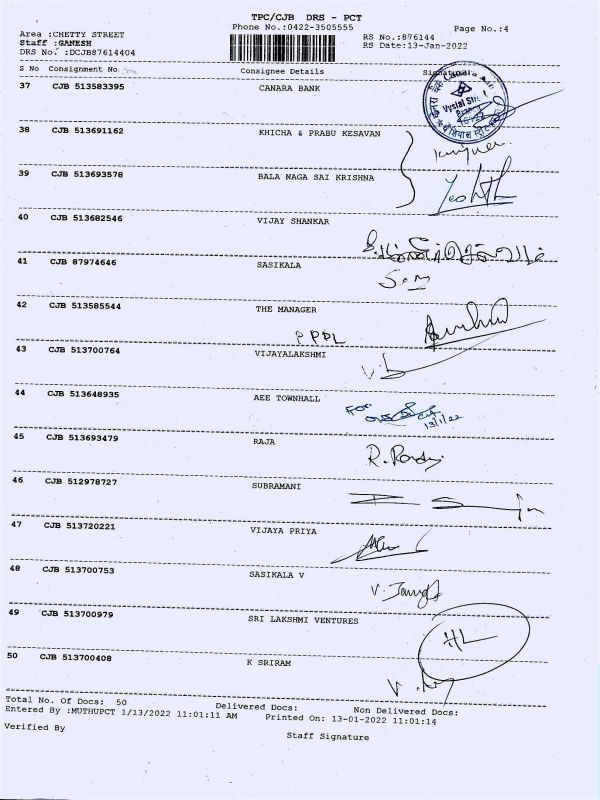 TPC/CJB DRS - PCT
Phone No.:0422-3505555
Page No.:4
Area :CHETTY STREET
Staff :GANESH
DRS No. :DCJB87614404
RS No.:876144
RS Date:13-Jan-2022
S No Consignment No Consignee Details Signature
37 CJB 513583395 CANARA BANK
38 CJB 513691162 KHICHA & PRABU KESAVAN
39 CJB 513693578 BALA NAGA SAI KRISHNA
40 CJB 513682546 VIJAY SHANKAR
41 CJB 87974646 SASIKALA
42 CJB 513585544 THE MANAGER
PPPL
43 CJB 513700764 VIJAYALAKSHMI
44 CJB 513648935 AEE TOWNHALL
For
13/1/22
45 CJB 513693479 RAJA
46 CJB 512978727 SUBRAMANI
47 CJB 513720221 VIJAYA PRIYA
48 CJB 513700753 SASIKALA V
49 CJB 513700979 SRI LAKSHMI VENTURES
HL
50 CJB 513700408 K SRIRAM
Total No. Of Docs: 50 Delivered Docs: Non Delivered Docs:
Entered By :MUTHUPCT 1/13/2022 11:01:11 AM Printed On: 13-01-2022 11:01:14
Verified By
Staff Signature